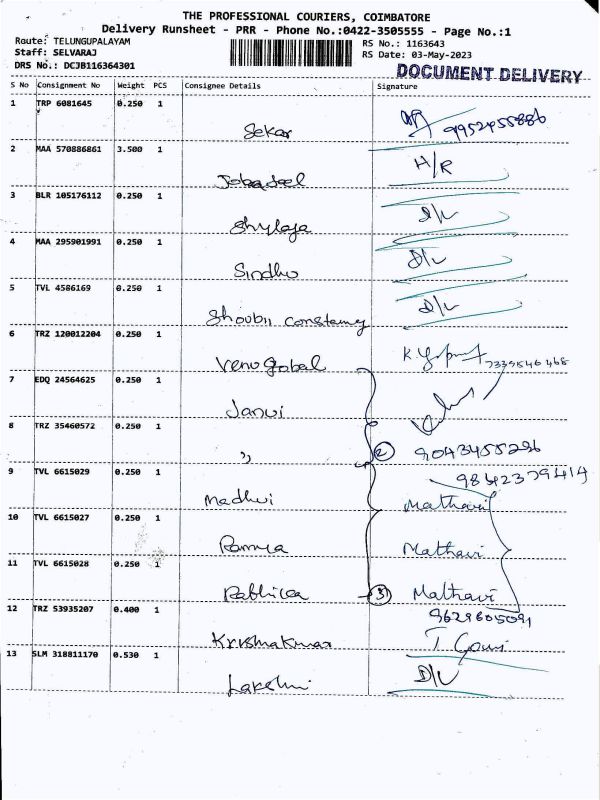 THE PROFESSIONAL COURIERS, COIMBATORE
Delivery Runsheet - PRR - Phone No.:0422-3505555 - Page No.:1
Route: TELUNGUPALAYAM RS No.: 1163643
Staff: SELVARAJ RS Date: 03-May-2023
DRS No.: DCJB116364301 DOCUMENT DELIVERY
S No Consignment No Weight PCS Consignee Details Signature
1 TRP 6081645 0.250 1
Sekar 9952455886
2 MAA 570886861 3.500 1 H/R
3 BLR 105176112 0.250 1
Shylaja
4 MAA 295901991 0.250 1
Sindhu D/L
5 TVL 4586169 0.250 1
Shoubii
6 TRZ 120012204 0.250 1
Venu Gobal 7339546468
7 EDQ 24564625 0.250 1
Janvi
8 TRZ 35460572 0.250 1
" 2 9043455286
9 TVL 6615029 0.250 1 9842379414
Madhvi Mathavi
10 TVL 6615027 0.250 1
Ramya Mathavi
11 TVL 6615028 0.250 1
3 Mathavi
12 TRZ 53935207 0.400 1 9629605091
Krishnakumar T. Gowri
13 SLM 318811170 0.530 1 D/L
Lakshmi